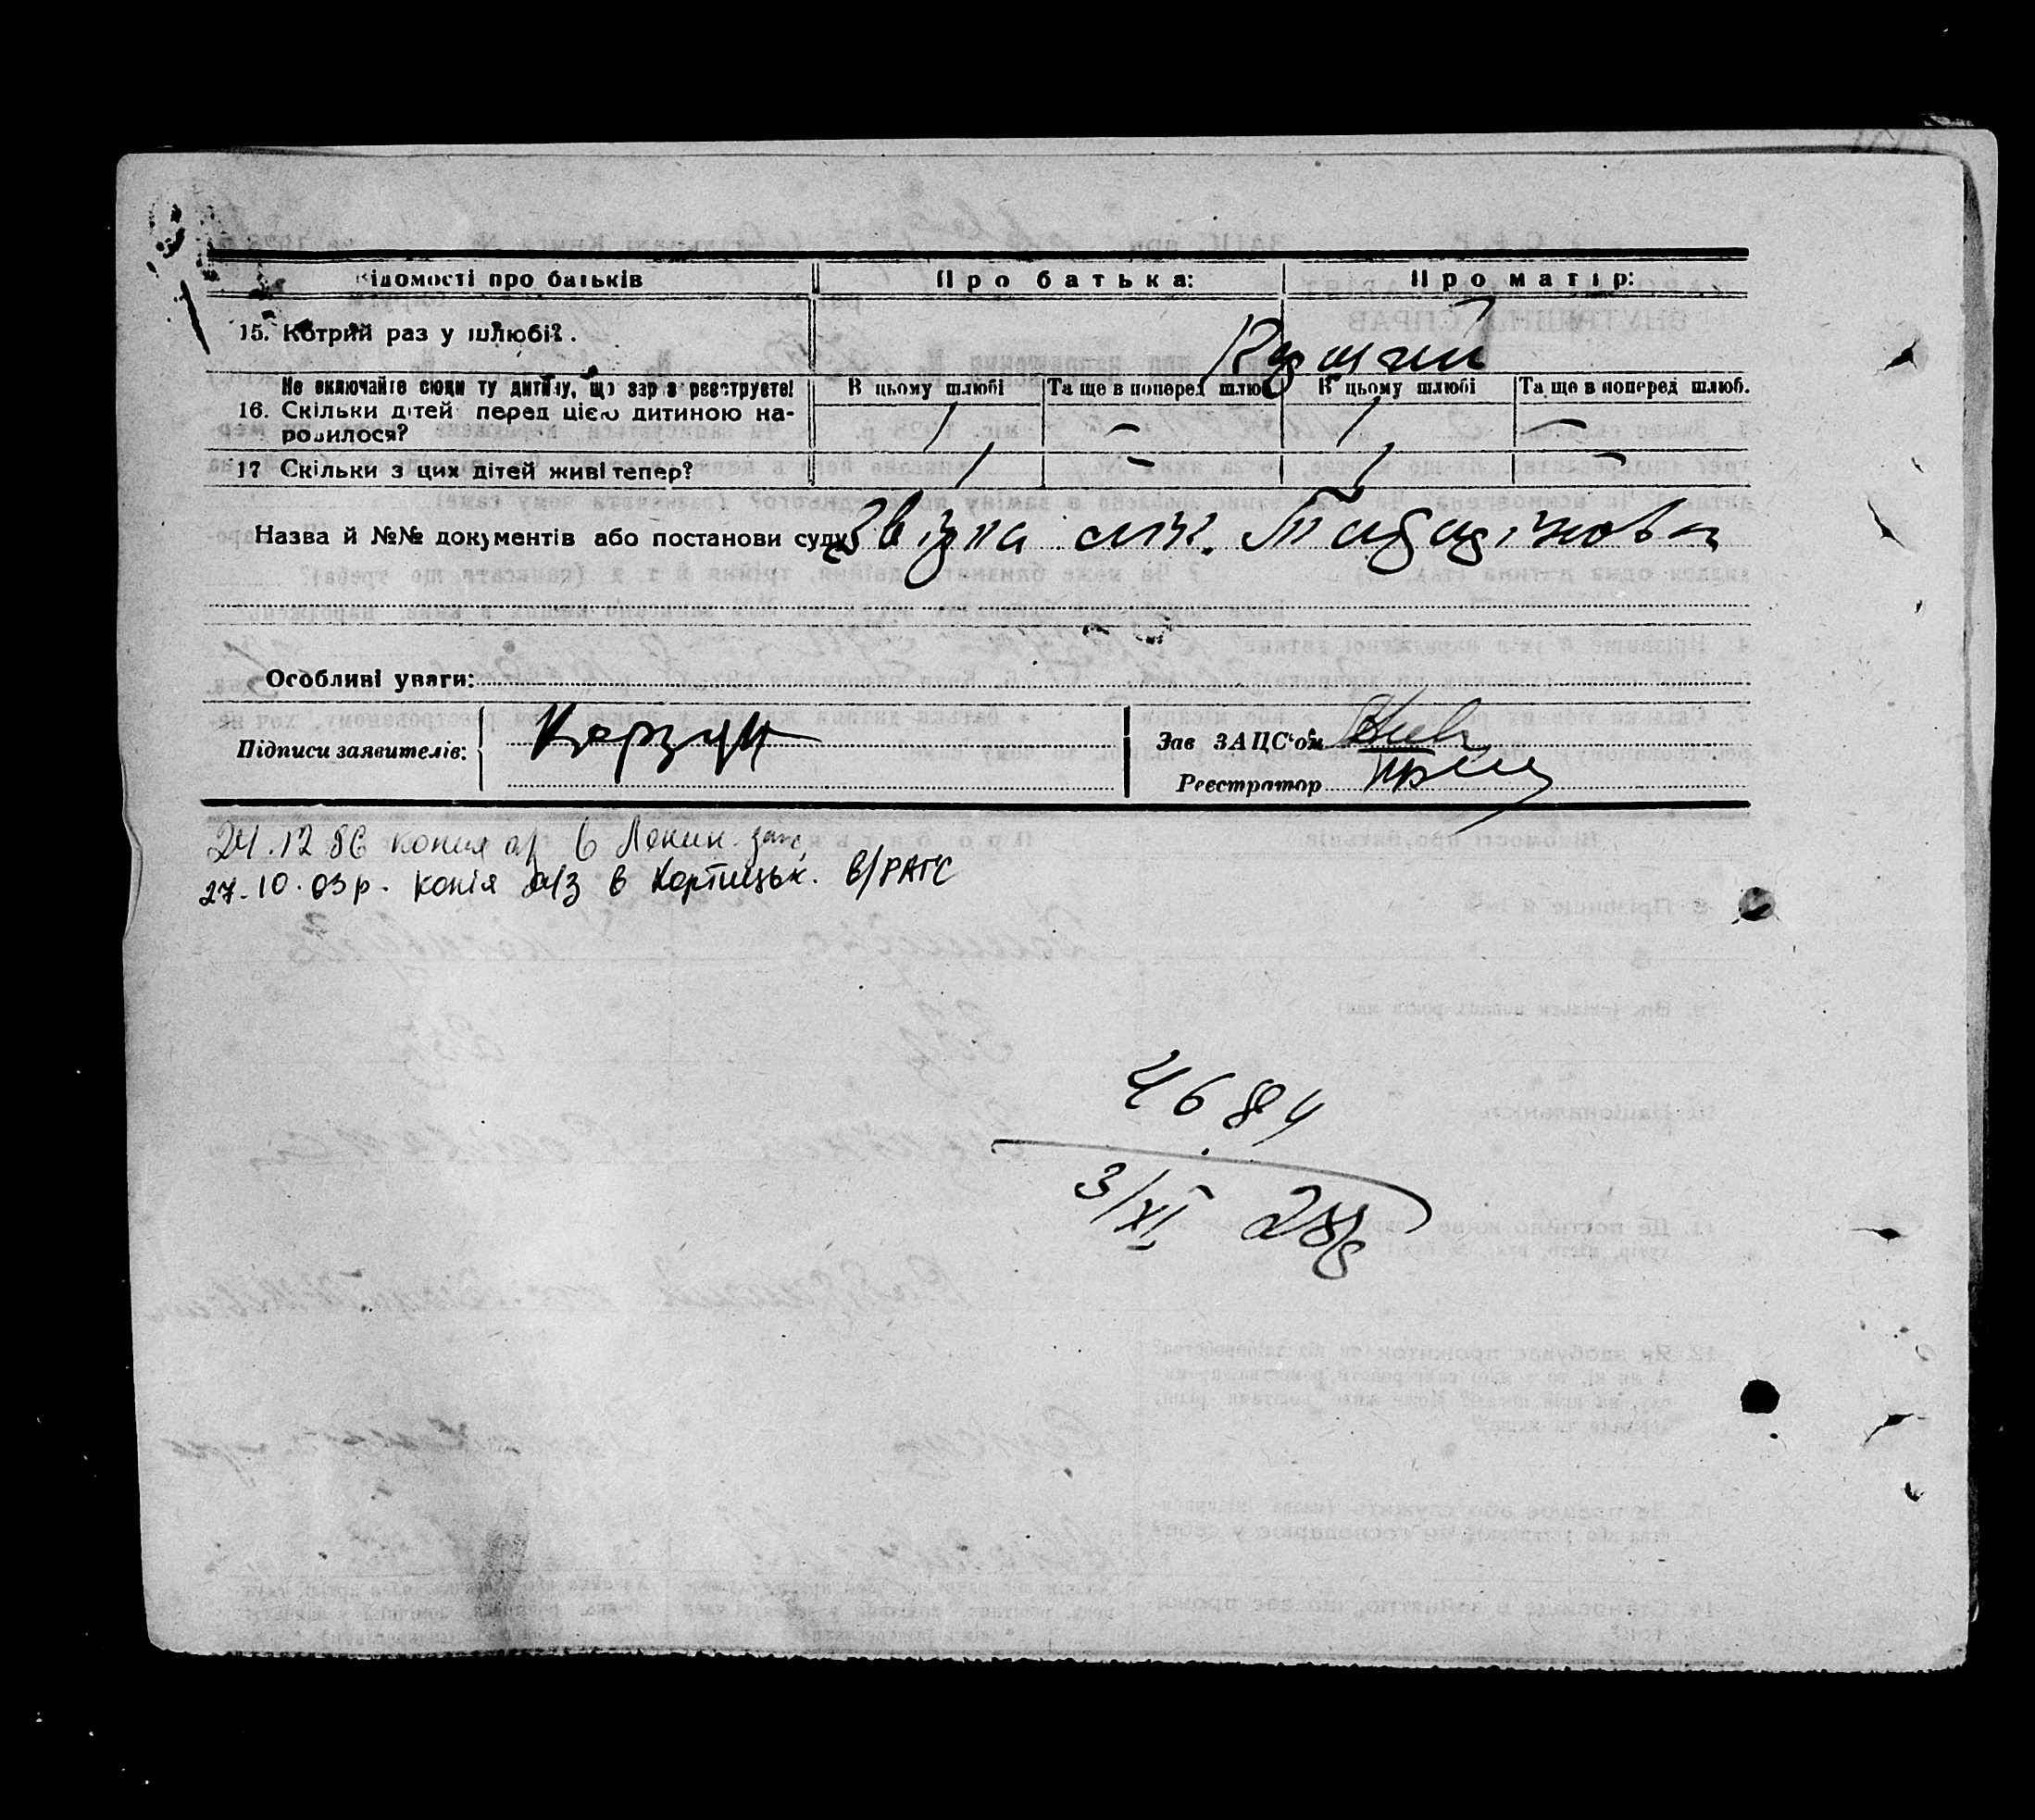 ідомості про батьків Про батька: Про матір:
15. Котрий раз у шлюбі?
Не включайте сюди ту дитину, що зараз реєструєте! В цьому шлюбі Та ще в поперед шлюб В цьому шлюбі Та ще в поперед шлюб.
16. Скільки дітей перед цією дитиною на-
родилося? 1 — 1 —
17 Скільки з цих дітей живі тепер? 1 — 1 —
Назва й №№ документів або постанови суду
Особливі уваги:
Підписи заявителів: Корзун Зав ЗАЦС'ом
Реєстратор
24.12 86 копия а/ в Ленин. загс
27.10.03р. копія а/з в Хортицьк. в/РАГС
4684
3/XI 28